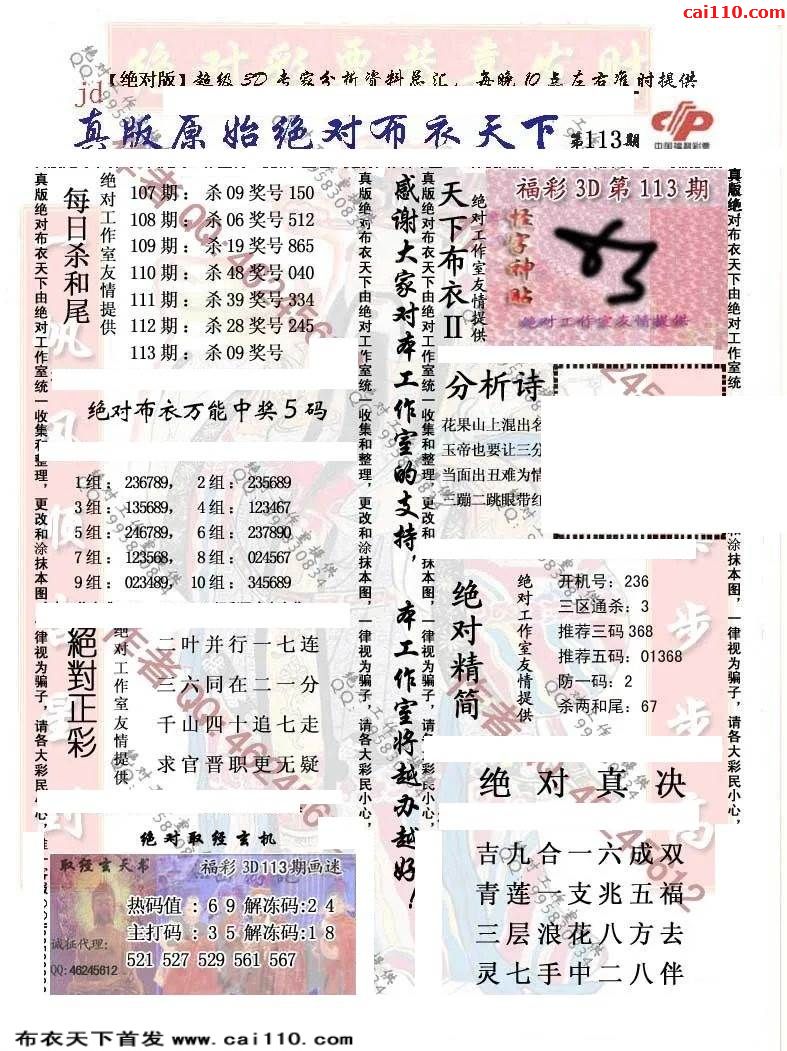 cai110.com
【绝对版】超级3D专家分析资料总汇，每晚10点左右准时提供
jd
真版原始绝对布衣天下 第113期
中国福利彩票
每日杀和尾
绝对工作室友情提供
107期：杀09奖号150
108期：杀06奖号512
109期：杀19奖号865
110期：杀48奖号040
111期：杀39奖号334
112期：杀28奖号245
113期：杀09奖号
绝对布衣万能中奖5码
1组：236789， 2组：235689
3组：135689， 4组：123467
5组：246789， 6组：237890
7组：123568， 8组：024567
9组：023489， 10组：345689
絕對正彩
绝对工作室友情提供
二叶并行一七连
三六同在二一分
千山四十追七走
求官晋职更无疑
绝对取经玄机
取经玄天书
福彩3D113期画迷
热码值：69解冻码:24
主打码：35解冻码:18
521 527 529 561 567
诚征代理:
QQ:46245612
真版绝对布衣天下由绝对工作室统一收集和整理，更改和涂抹本图，一律视为骗子，请各大彩民小心，
感谢大家对本工作室的支持，本工作室将越办越好！
天下布衣II
绝对工作室友情提供
福彩3D第113期
怪字神贴
绝对工作室友情提供
分析诗
花果山上混出名
玉帝也要让三分
当面出丑难为情
二蹦二跳眼带红
绝对精简
绝对工作室友情提供
开机号：236
三区通杀：3
推荐三码368
推荐五码：01368
防一码：2
杀两和尾：67
绝对真决
吉九合一六成双
青莲一支兆五福
三层浪花八方去
灵七手中二八伴
布衣天下首发 www.cai110.com